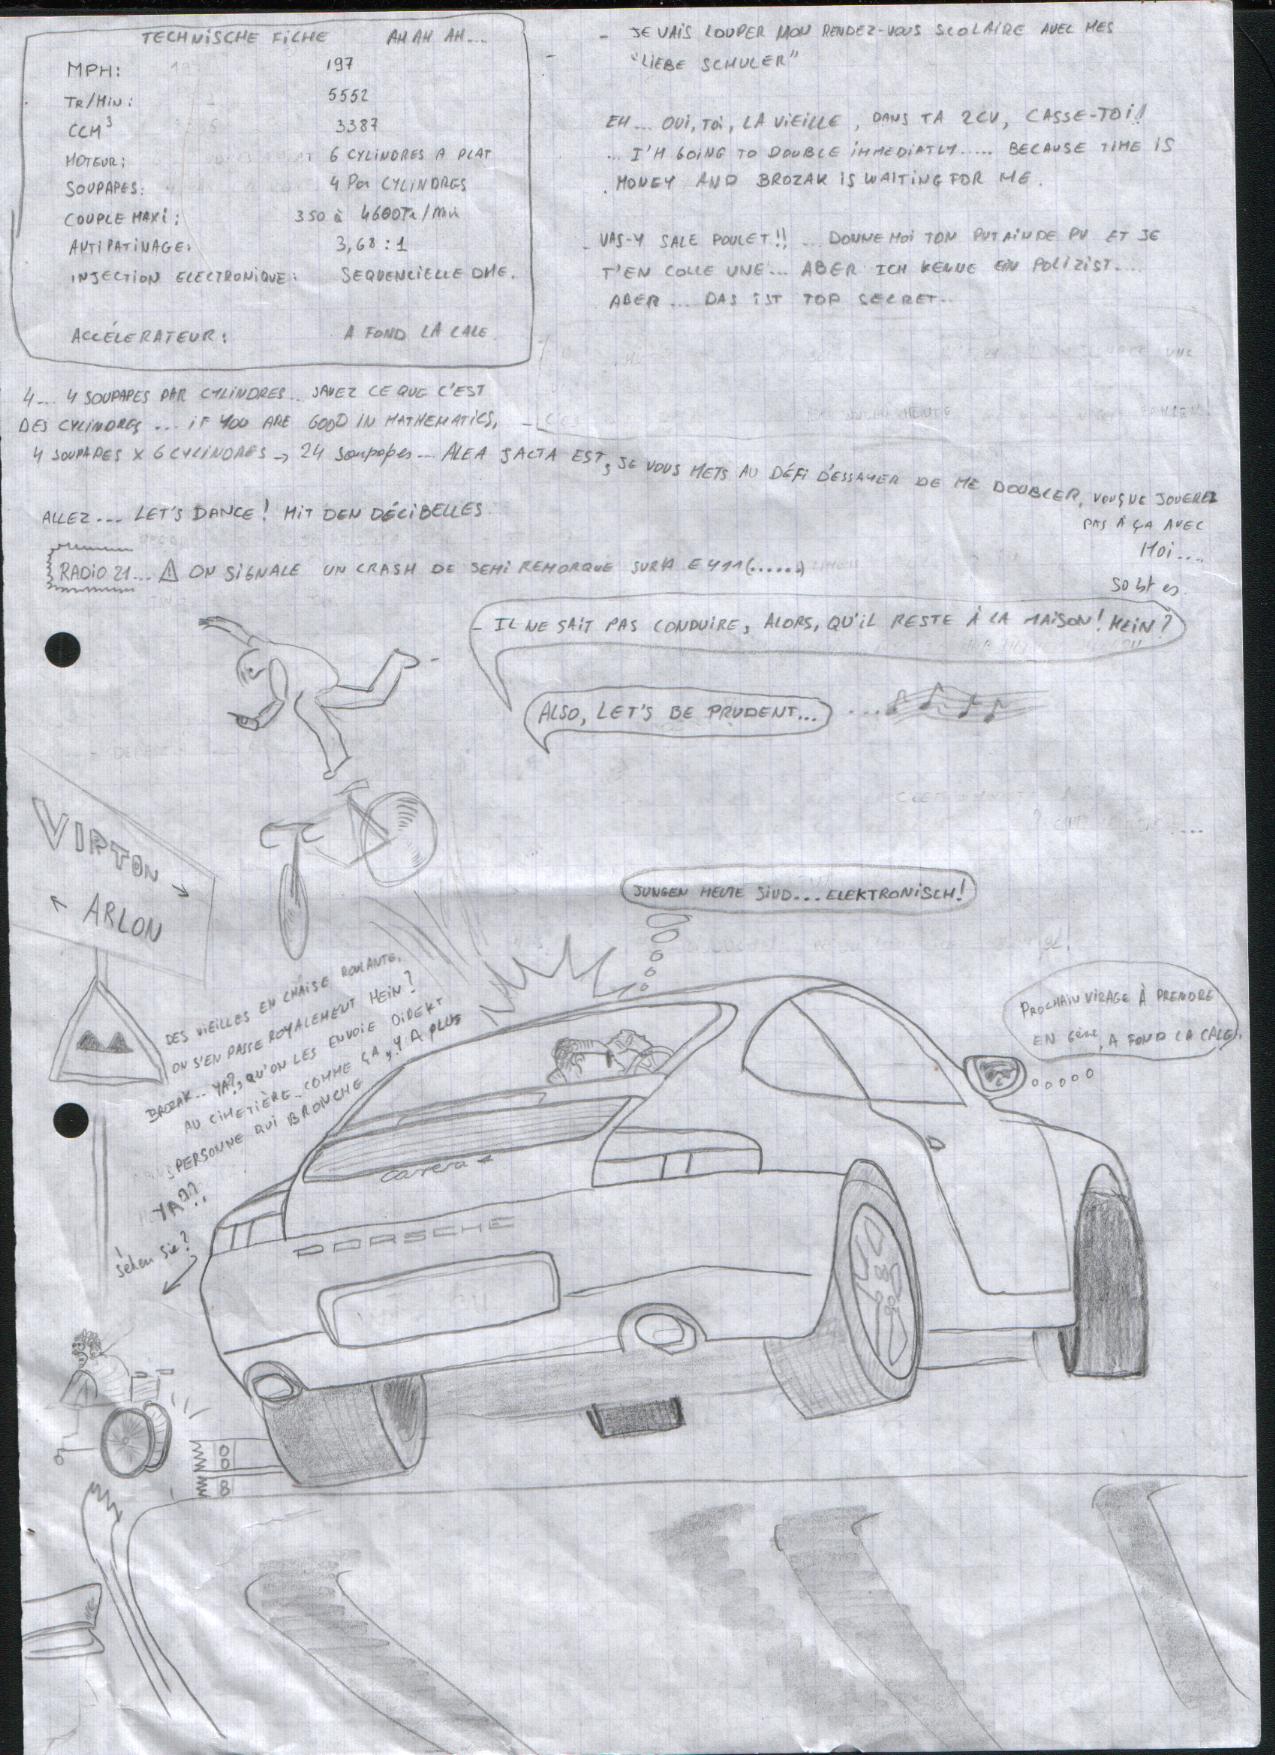 TECHNISCHE FICHE AH AH AH...
MPH: 197
TR/MIN: 5552
CCM³ 3387
MOTEUR: 6 CYLINDRES A PLAT
SOUPAPES: 4 Par CYLINDRES
COUPLE MAXI: 350 à 4600Tr/Min
ANTIPATINAGE: 3,68:1
INJECTION ELECTRONIQUE: SEQUENCIELLE DME.
ACCÉLERATEUR: A FOND LA CALE
- JE VAIS LOUPER MON RENDEZ-VOUS SCOLAIRE AVEC MES
"LIEBE SCHULER"
EH... OUI, TOI, LA VIEILLE, DANS TA 2CV, CASSE-TOI!!
... I'M GOING TO DOUBLE IMMEDIATLY..... BECAUSE TIME IS
MONEY AND BROZAK IS WAITING FOR ME.
- VAS-Y SALE POULET!! ... DONNE MOI TON PUTAIN DE PV ET JE
T'EN COLLE UNE... ABER ICH KENNE EIN POLIZIST....
ABER... DAS IST TOP SECRET...
4... 4 SOUPAPES PAR CYLINDRES... SAVEZ CE QUE C'EST
DES CYLINDRES... IF YOU ARE GOOD IN MATHEMATICS,
4 SOUPAPES X 6 CYLINDRES → 24 Soupapes... ALEA JACTA EST, JE VOUS METS AU DÉFI D'ESSAYER DE ME DOUBLER, VOUS NE JOUEREZ
PAS À ÇA AVEC
MOI....
ALLEZ... LET'S DANCE! MIT DEN DÉCIBELLES.
RADIO 21... ⚠ ON SIGNALE UN CRASH DE SEMI REMORQUE SUR LA E411(......)
- IL NE SAIT PAS CONDUIRE, ALORS, QU'IL RESTE À LA MAISON! HEIN?
ALSO, LET'S BE PRUDENT...
VIRTON
ARLON
JUNGEN HEUTE SIND... ELEKTRONISCH!
PROCHAIN VIRAGE À PRENDRE
EN 6ème, A FOND LA CALE.
DES VIEILLES EN CHAISE ROULANTE,
ON S'EN PASSE ROYALEMENT HEIN?
BROZAK... YA?, QU'ON LES ENVOIE DIREKT
AU CIMETIÈRE... COMME ÇA, Y A PLUS
PERSONNE QUI BRONCHE
YA??
sehen Sie?
carrera 4
PORSCHE